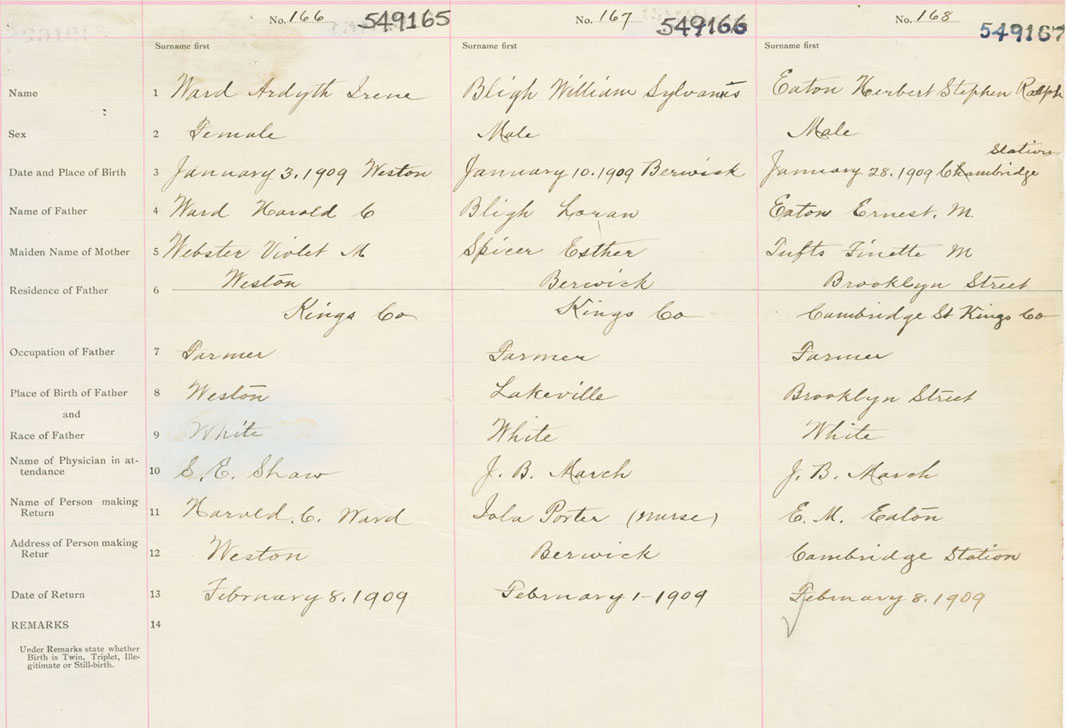 No. 166 549165 No. 167 549166 No. 168 549167
Surname first Surname first Surname first
Name 1 Ward Ardyth Irene Bligh William Sylvanus Eaton Herbert Stephen Ralph
Sex 2 Female Male Male
Station
Date and Place of Birth 3 January 3. 1909 Weston January 10. 1909 Berwick January 28. 1909 Cambridge
Name of Father 4 Ward Harold C Bligh Loran Eaton Ernest. M.
Maiden Name of Mother 5 Webster Violet M Spicer Esther Tufts Finette M
Weston Berwick Brooklyn Street
Residence of Father 6
Kings Co Kings Co Cambridge St Kings Co
Occupation of Father 7 Farmer Farmer Farmer
Place of Birth of Father 8 Weston Lakeville Brooklyn Street
and
Race of Father 9 White White White
Name of Physician in at-
tendance 10 S. E. Shaw J. B. March J. B. March
Name of Person making
Return 11 Harold. C. Ward Iola Porter (nurse) E. M. Eaton
Address of Person making
Retur 12 Weston Berwick Cambridge Station
Date of Return 13 February 8. 1909 February 1- 1909 February 8. 1909
REMARKS 14
Under Remarks state whether
Birth is Twin, Triplet, Ille-
gitimate or Still-birth.